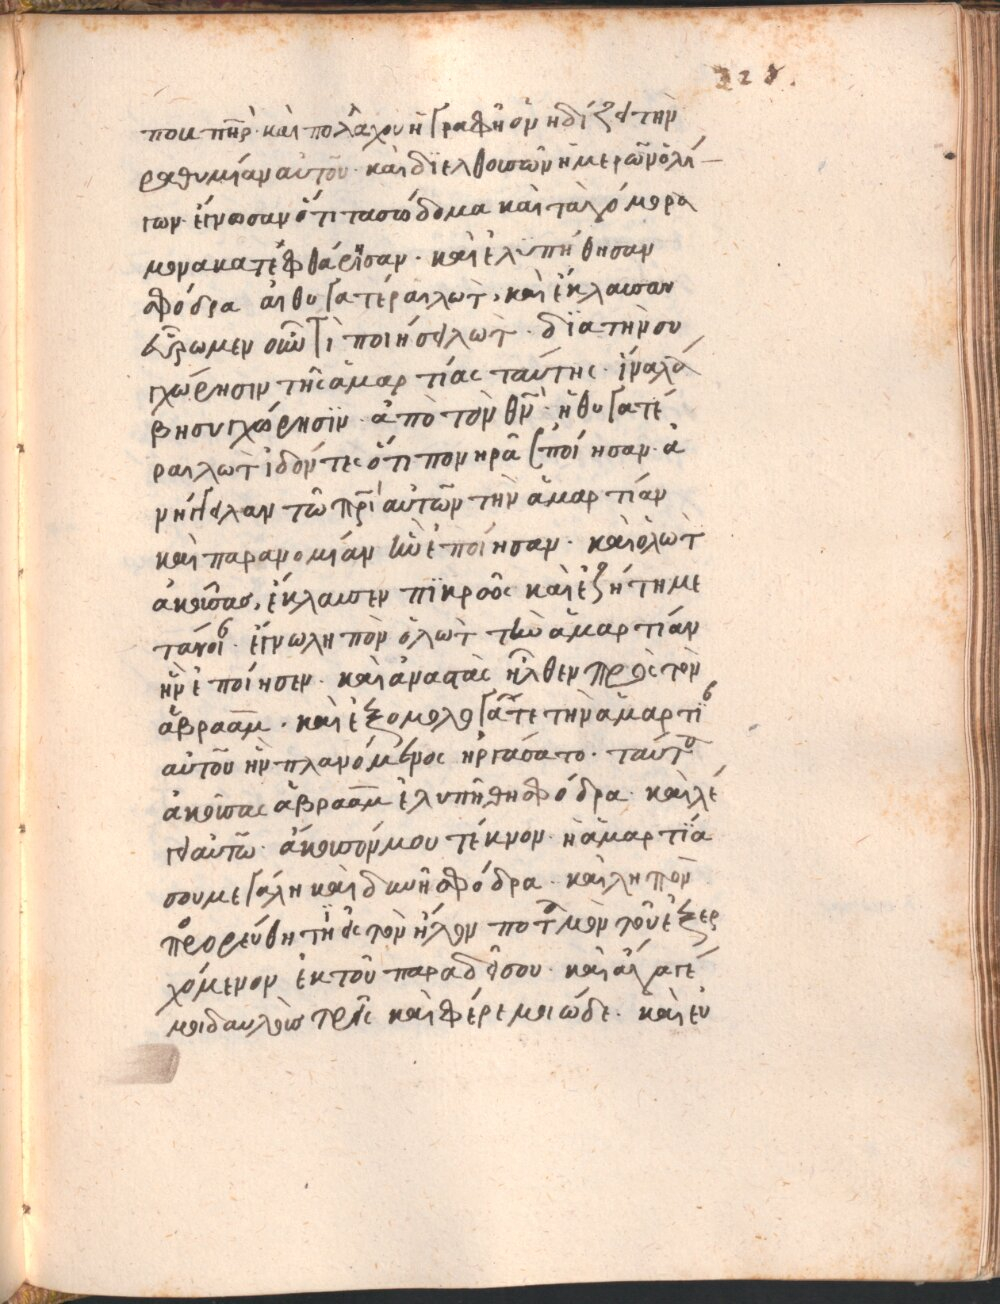 που πηρ. και πολαχου ἡ γραφὴ ὀνηδίζει τὴν
ραθυμίαν αὐτοῦ. καὶ διελθουσῶν ἡμερῶν ὀλί
γων ἔγνωσαν ὅτι τα σώδομα καὶ τὰ γόμορα
μονα κατεφθάρισαν. καὶ ἐλυπήθησαν
σφόδρα αἱ θυγατέραι λωτ, καὶ ἔκλαυσαν
εὕρωμεν οὖν τί ποιήσει λώτ. διὰ τὴν συ
γχώρησιν τῆς ἁμαρτίας ταύτης. ἵνα λά
βη συγχώρησϊν. ἀπὸ τὸν θν. ἡ θυγατέ
ραι λὼτ ἰδόντες ὅτι πονηρὰ ἐποίησαν. ἀ
νήγγειλαν τῶ πρι αὐτῶν τὴν ἁμαρτίαν
καὶ παρανομίαν ἣν ἐποίησαν. καὶ ὁ λὼτ
ἀκούσας, ἔκλαυσεν πϊκρῶς καὶ ἐζήτη με
τάνοι. ἔγνω ληπὸν ὁ λὼτ τὴν ἁμαρτίαν
ἣν ἐποίησεν. καὶ ἀναστὰς ἦλθεν πρὸς τὸν
ἀβραάμ. καὶ ἐξομολογᾶτε τὴν ἁμαρτί
αὐτοῦ ἣν πλανόμενος ἠργάσατο. ταῦτ
ἀκούσας ἀβραάμ ἐλυπήθη σφόδρα. καὶ λέ
γει αὐτῶ. ἄκουσόν μου τέκνον. ἡ ἁμαρτία
σου μεγάλη καὶ δεινὴ σφόδρα. καὶ ληπὸν
πορεύθητϊ εἰς τὸν νήλον ποτμὸν τοῦ ἐξερ
χόμενον ἐκ τοῦ παραδείσου. καὶ ἄγαγέ
μοι δαυλοὺς τρεῖς καὶ φέρε μοι ὧδε. καὶ εὐ